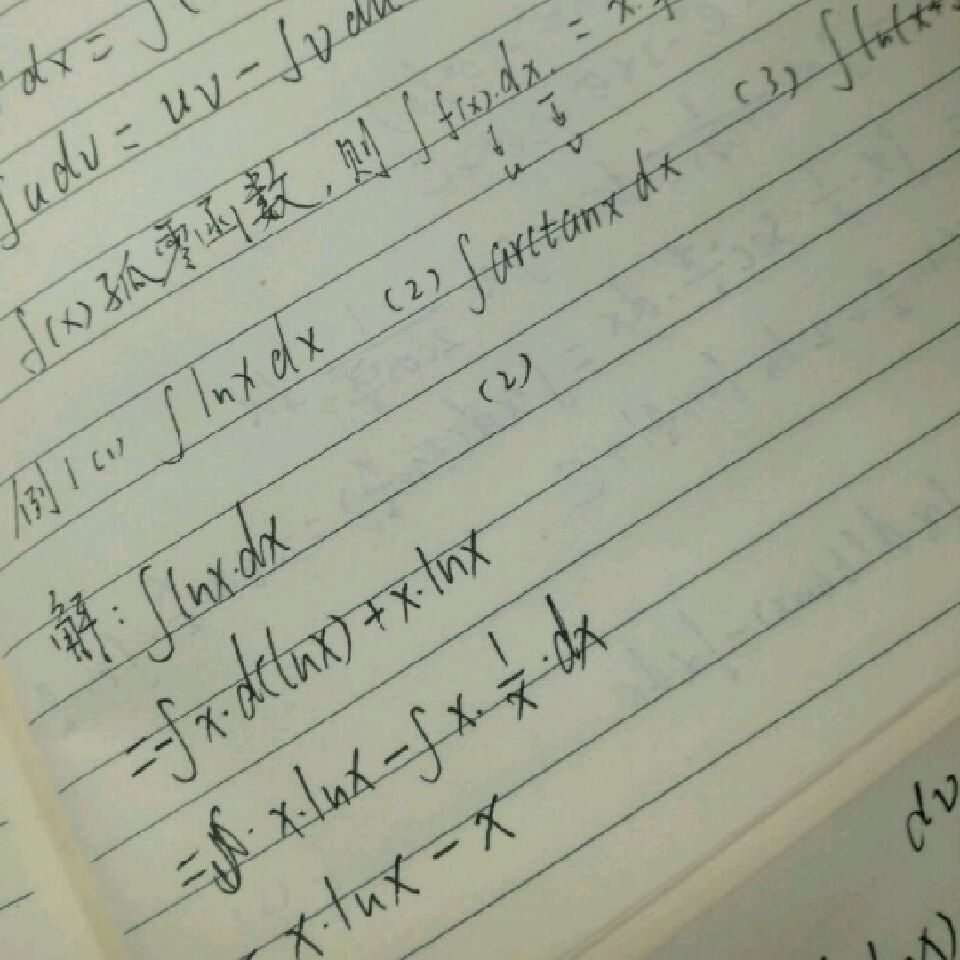 dx = ∫
∫udv = uv - ∫v du
f(x) 孤零函数, 则 ∫ f(x)·dx = x·
↓ ↓
u v
例1 (1) ∫ lnx dx (2) ∫arctanx dx (3) ∫ ln(x+
(2)
解: ∫lnx·dx
= -∫x·d(lnx) + x·lnx
= x·lnx - ∫x·1/x·dx
x·lnx - x
dv
lnx)